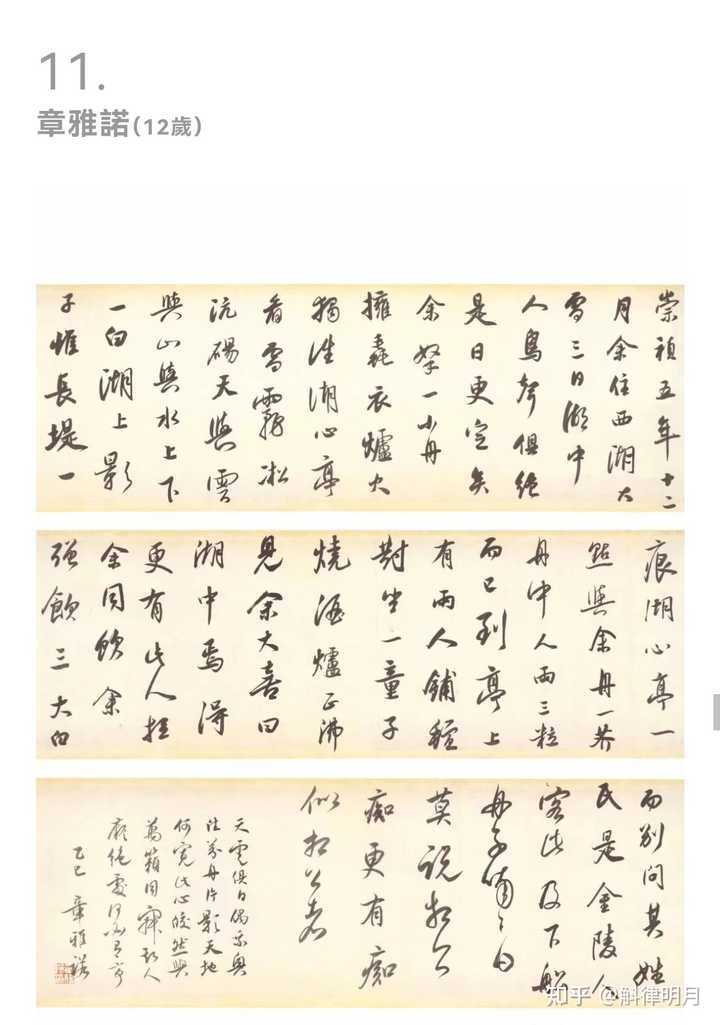 11.
章雅諾(12歲)
崇禎五年十二
月余住西湖大
雪三日湖中
人鳥聲俱絕
是日更定矣
余拏一小舟
擁毳衣爐火
獨往湖心亭
看雪霧凇
沆碭天與雲
與山與水上下
一白湖上影
子惟長堤一
痕湖心亭一
點與余舟一芥
舟中人兩三粒
而已到亭上
有兩人鋪氈
對坐一童子
燒酒爐正沸
見余大喜曰
湖中焉得
更有此人拉
余同飲余
強飲三大白
而別問其姓
氏是金陵人
客此及下船
舟子喃〻曰
莫說相公
痴更有痴
似相公者
天雲俱白偶乘興
往芥舟片影天地
何寬此心皎然與
萬籟同
絕處何必有亭
乙巳 章雅諾
知乎 @斛律明月